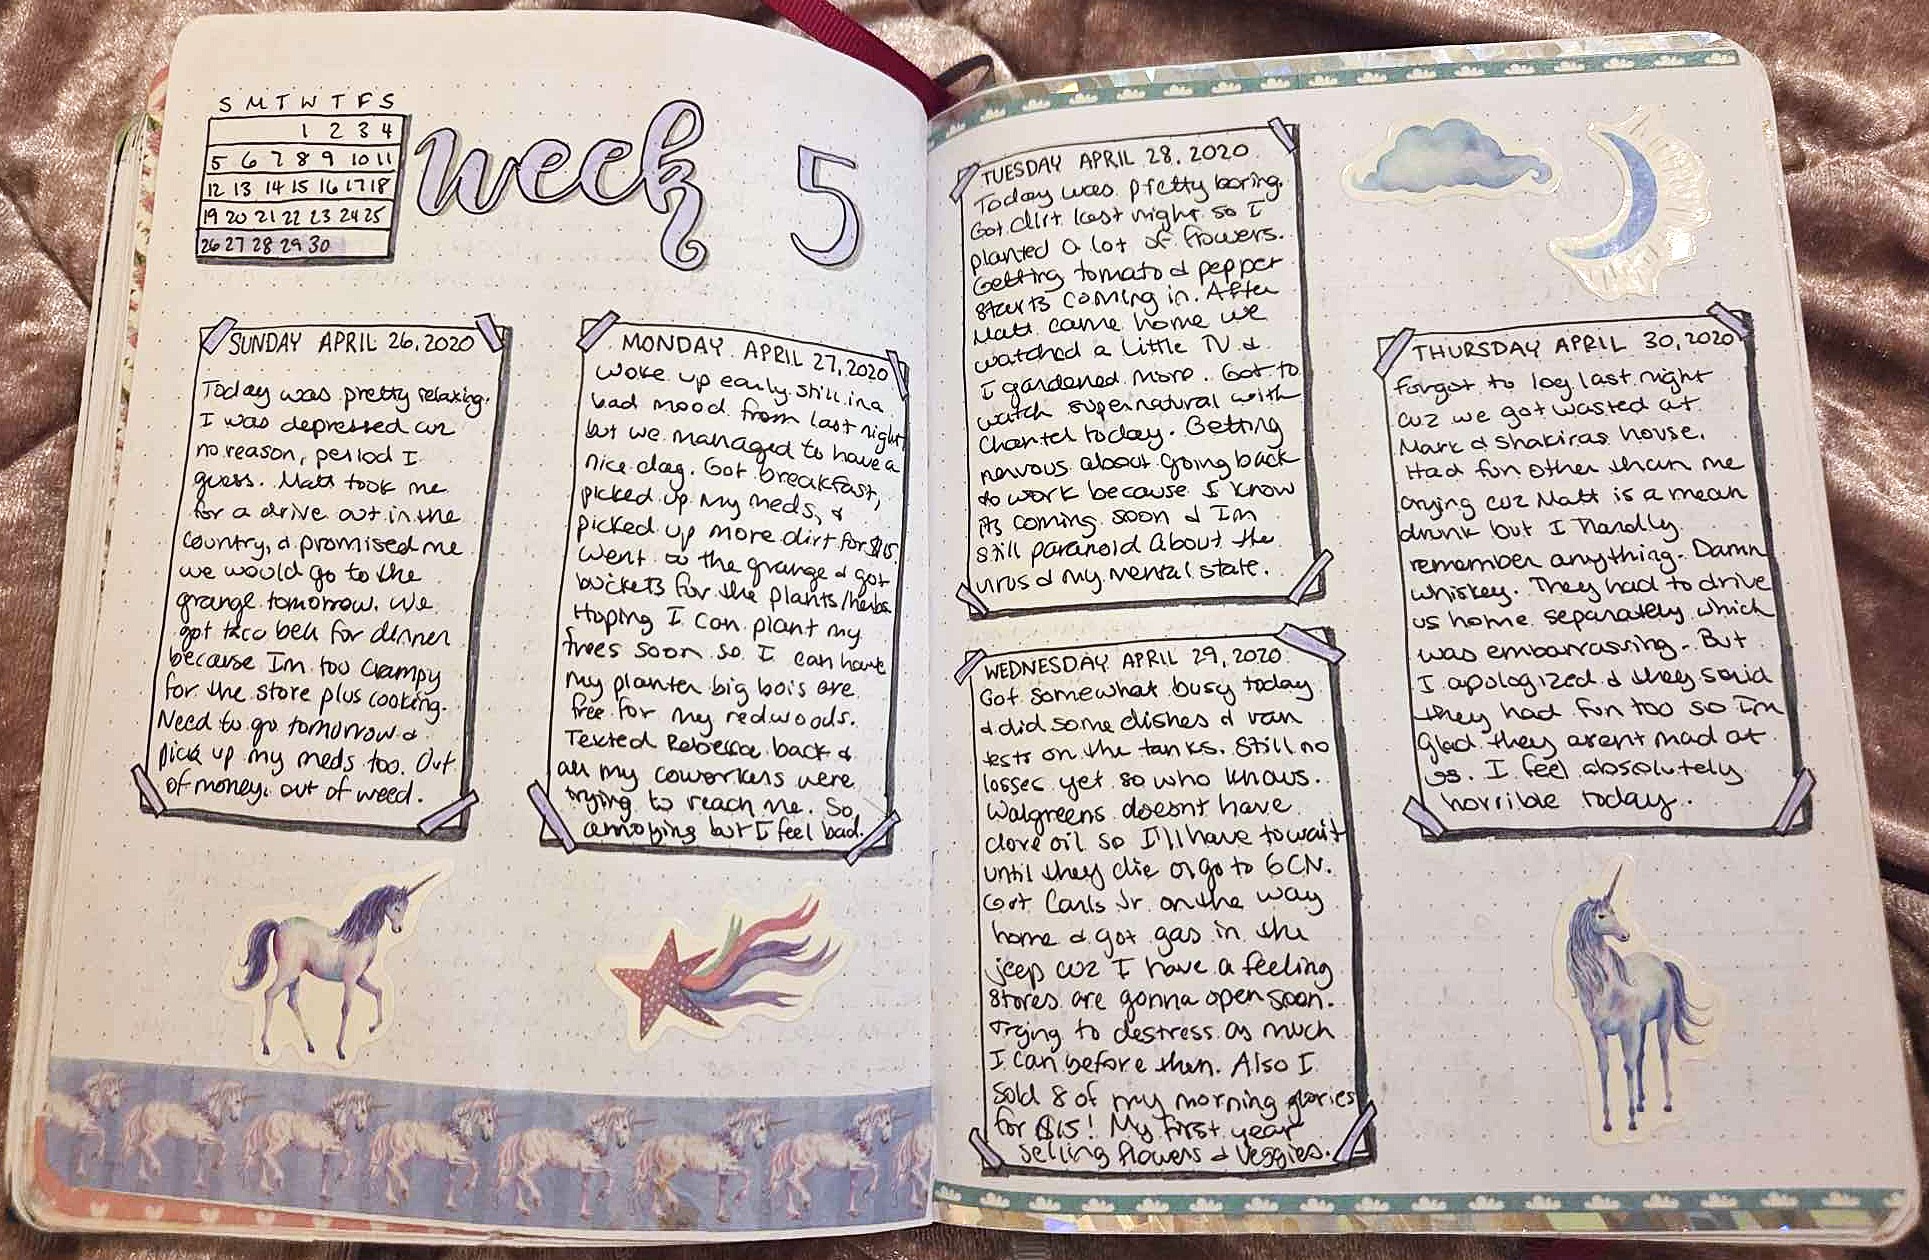 S M T W T F S
1 2 3 4
5 6 7 8 9 10 11
12 13 14 15 16 17 18
19 20 21 22 23 24 25
26 27 28 29 30
week 5
SUNDAY APRIL 26, 2020
Today was pretty relaxing.
I was depressed cuz
no reason, period I
guess. Matt took me
for a drive out in the
country, & promised me
we would go to the
grange tomorrow. We
got taco bell for dinner
because Im too crampy
for the store plus cooking.
Need to go tomorrow &
pick up my meds too. Out
of money, out of weed.
MONDAY APRIL 27, 2020
Woke up early still in a
bad mood from last night
but we managed to have a
nice day. Got breakfast,
picked up my meds, &
picked up more dirt for $15.
Went to the grange & got
buckets for the plants/herbs.
Hoping I can plant my
trees soon so I can have
my planter big bois are
free for my redwoods.
Texted Rebecca back &
all my coworkers were
trying to reach me. So
annoying but I feel bad.
TUESDAY APRIL 28, 2020
Today was pretty boring.
Got dirt last night so I
planted a lot of flowers.
Getting tomato & pepper
starts coming in. After
Matt came home we
watched a little TV &
I gardened more. Got to
watch supernatural with
Chantel today. Getting
nervous about going back
to work because I know
its coming soon & Im
still paranoid about the
virus & my mental state.
WEDNESDAY APRIL 29, 2020
Got somewhat busy today
& did some dishes & ran
tests on the tanks. Still no
losses yet so who knows.
Walgreens doesnt have
clove oil so I'll have to wait
until they die or go to GCN.
Got Carls Jr on the way
home & got gas in the
jeep cuz I have a feeling
stores are gonna open soon.
Trying to destress as much
I can before then. Also I
sold 8 of my morning glories
for $15! My first year
selling flowers & veggies.
THURSDAY APRIL 30, 2020
Forgot to log last night
cuz we got wasted at
Mark & Shakiras house.
Had fun other than me
crying cuz Matt is a mean
drunk but I hardly
remember anything. Damn
whiskey. They had to drive
us home separately which
was embarrassing. But
I apologized & they said
they had fun too so Im
glad they arent mad at
us. I feel absolutely
horrible today.